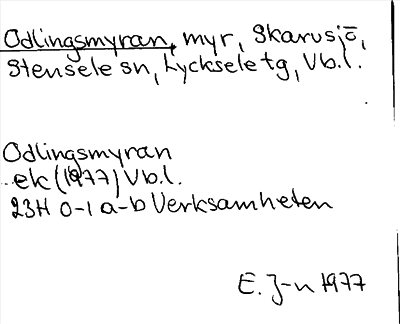 Odlingsmyran, myr, Skarvsjö,
Stensele sn, Lycksele tg, Vb.l.
Odlingsmyran
ek (1977) Vb.l.
23H 0-1 a-b Verksamheten
E. J-n 1977